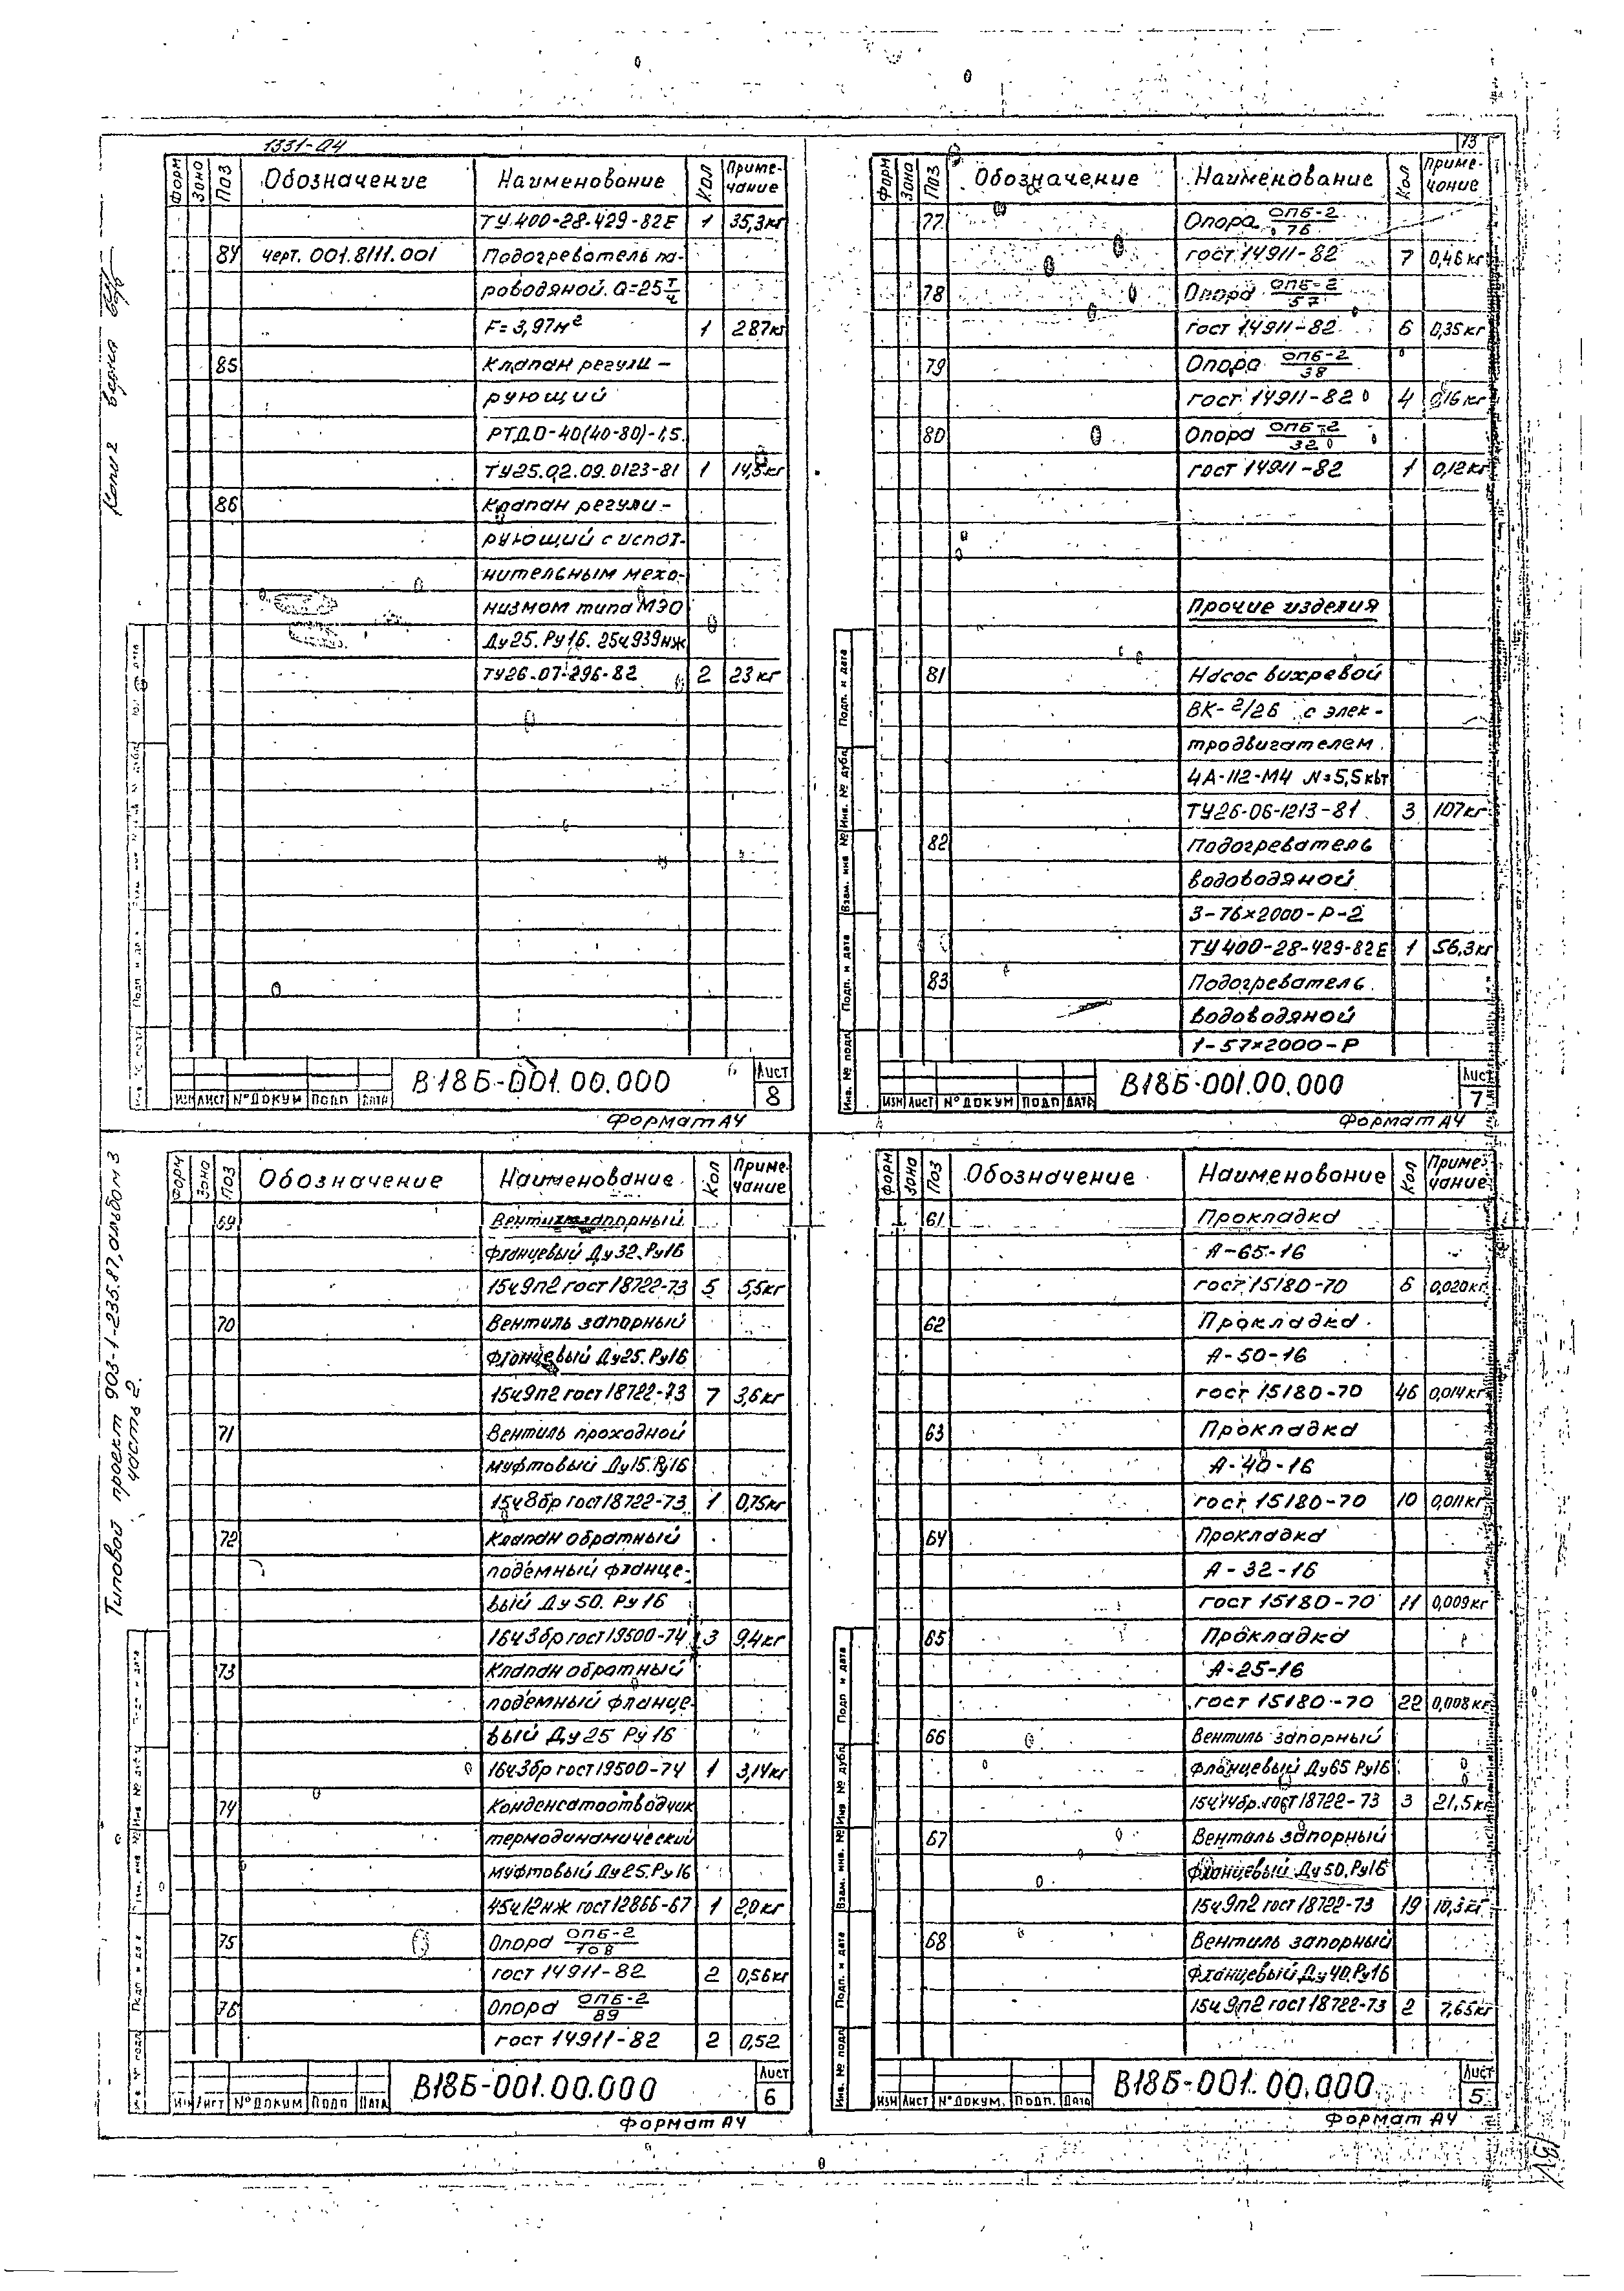 1331-04
13
Форм Зона Поз Обозначение Наименование Кол Примечание
ТУ 400-28-429-82Е 1 35,3кг
84 черт. 001.8111.001 Подогреватель па-
роводяной. Q=25 т/ч
F=3,97м² 1 287кг
85 Клапан регули-
рующий
РТДО-40(40-80)-1,5.
ТУ25.02.09.0123-81 1 14,5кг
86 Клапан регули-
рующий с испол-
нительным меха-
низмом типа МЭО
Ду25. Ру16. 25ч939нж
ТУ26-07-296-82 2 23кг
Изм Лист № докум Подп Дата
В18Б-001.00.000
Лист 8
Формат А4
Форм Зона Поз Обозначение Наименование Кол Примечание
77 Опора ОПБ-2/76
гост 14911-82 7 0,46кг
78 Опора ОПБ-2/57
гост 14911-82 6 0,35кг
79 Опора ОПБ-2/38
гост 14911-82 4 0,16кг
80 Опора ОПБ-2/32
гост 14911-82 1 0,12кг
Прочие изделия
81 Насос вихревой
ВК-2/26 с элек-
тродвигателем
4А-112-М4 N=5,5квт
ТУ26-06-1213-81 3 107кг
82 Подогреватель
водоводяной
3-76×2000-Р-2
ТУ 400-28-429-82Е 1 56,3кг
83 Подогреватель
водоводяной
1-57×2000-Р
Инв. № подл Подп. и дата Взам. инв № Инв. № дубл Подп. и дата
Изм Лист № докум Подп Дата
В18Б-001.00.000
Лист 7
Формат А4
Типовой проект 903-1-236.87, альбом 3
часть 2.
Форм Зона Поз Обозначение Наименование Кол Примечание
69 Вентиль запорный
фланцевый Ду32. Ру16
15ч9п2 гост 18722-73 5 5,5кг
70 Вентиль запорный
фланцевый Ду25. Ру16
15ч9п2 гост 18722-73 7 3,6кг
71 Вентиль проходной
муфтовый Ду15. Ру16
15ч8бр гост 18722-73 1 0,75кг
72 Клапан обратный
подъемный фланце-
вый Ду50. Ру16
16ч3бр гост 19500-74 3 9,4кг
73 Клапан обратный
подъемный фланце-
вый Ду25 Ру16
16ч3бр гост 19500-74 1 3,14кг
74 Конденсатоотводчик
термодинамический
муфтовый Ду25. Ру16
45ч12нж гост 12866-67 1 2,0кг
75 Опора ОПБ-2/108
гост 14911-82 2 0,56кг
76 Опора ОПБ-2/89
гост 14911-82 2 0,52
Лист № докум Подп Дата
В18Б-001.00.000
Лист 6
Формат А4
Форм Зона Поз Обозначение Наименование Кол Примечание
61 Прокладка
А-65-16
гост 15180-70 6 0,020кг
62 Прокладка
А-50-16
гост 15180-70 46 0,014кг
63 Прокладка
А-40-16
гост 15180-70 10 0,011кг
64 Прокладка
А-32-16
гост 15180-70 11 0,009кг
65 Прокладка
А-25-16
гост 15180-70 22 0,008кг
66 Вентиль запорный
фланцевый Ду65 Ру16
15ч14бр гост 18722-73 3 21,5кг
67 Вентиль запорный
фланцевый Ду50. Ру16
15ч9п2 гост 18722-73 19 10,3кг
68 Вентиль запорный
фланцевый Ду40. Ру16
15ч9п2 гост 18722-73 2 7,65кг
Инв. № подл Подп. и дата Взам. инв. № Инв № дубл Подп и дата
Изм Лист № докум. Подп. Дата
В18Б-001.00.000
Лист 5
Формат А4